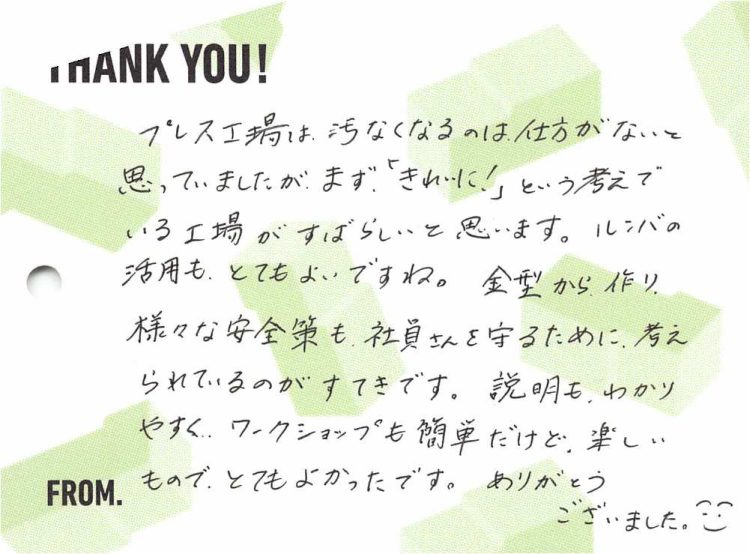 THANK YOU!
プレス工場は、汚なくなるのは、仕方がないと
思っていましたが、まず、「きれいに!」という考えで
いる工場がすばらしいと思います。ルンバの
活用も、とてもよいですね。金型から、作り、
様々な安全策も、社員さんを守るために、考え
られているのがすてきです。説明も、わかり
やすく、ワークショップも簡単だけど、楽しい
もので、とてもよかったです。ありがとう
ございました。
FROM.